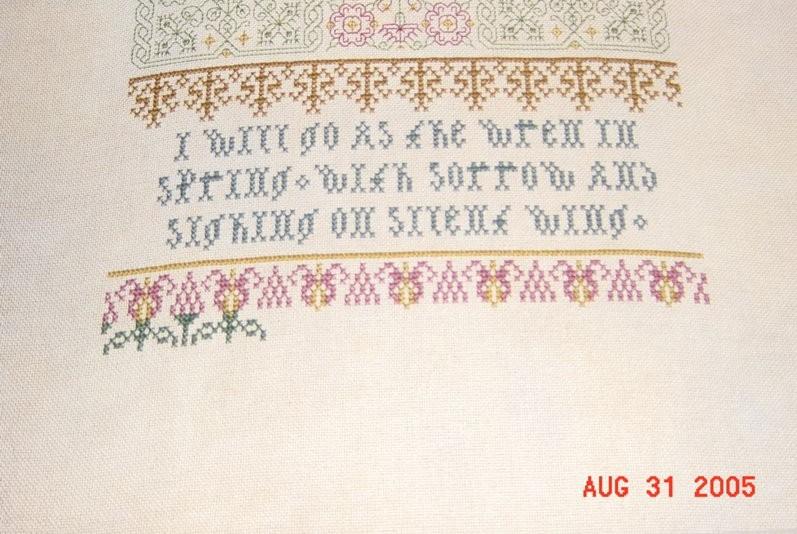 I will go as the wren in
spring⋄ with sorrow and
sighing on silent wing⋄
AUG 31 2005